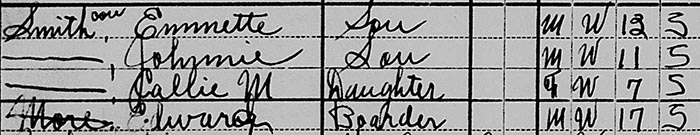 Smith, Emmette Son M W 12 S
——, Johnnie Son M W 11 S
——, Callie M Daughter F W 7 S
More, Edward Boarder M W 17 S